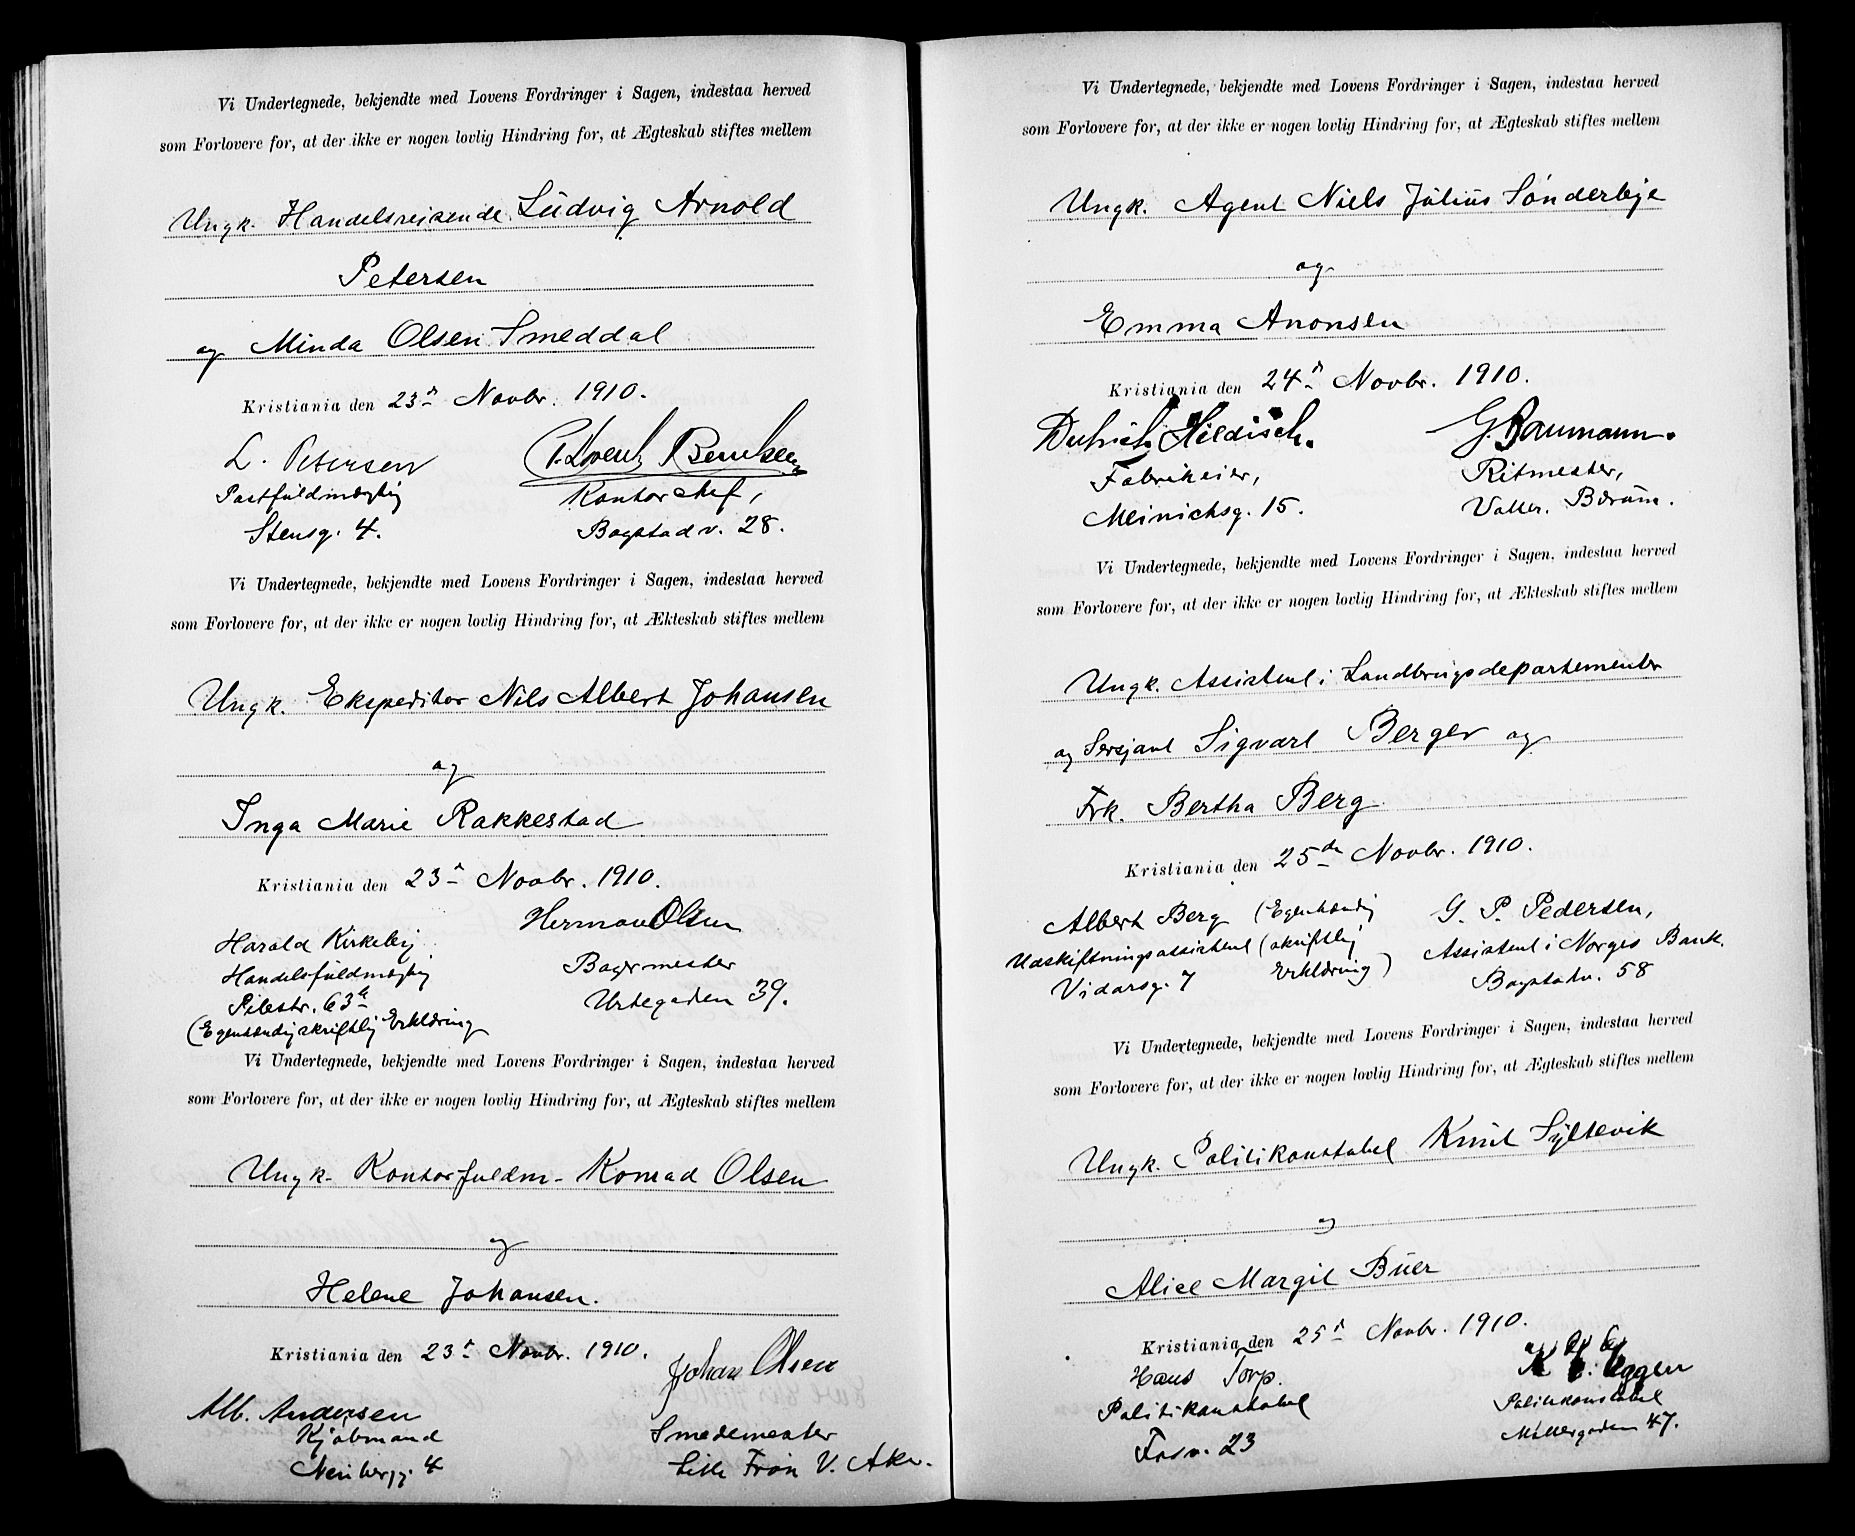 Vi Undertegnede, bekjendte med Lovens Fordringer i Sagen, indestaa herved
som Forlovere for, at der ikke er nogen lovlig Hindring for, at Ægteskab stiftes mellem
Ungk. Handelsreisende Ludvig Arnold
Petersen
og Minda Olsen Smeddal
Kristiania den 23d Novbr. 1910.
L. Petersen
Postfuldmægtig
Stensg. 4.
Berntsen
Kontorchef,
Bogstadv. 28.
Vi Undertegnede, bekjendte med Lovens Fordringer i Sagen, indestaa herved
som Forlovere for, at der ikke er nogen lovlig Hindring for, at Ækteskab stiftes mellem
Ungk. Ekspeditør Nils Albert Johansen
og
Inga Marie Rakkestad
Kristiania den 23d Novbr. 1910.
Harald Kirkeby
Handelsfuldmægtig
Pilestr. 63
(Egenhændig skriftlig Erklæring
Herman Olsen
Bagermester
Urtegaden 39.
Vi Undertegnede, bekjendte med Lovens Fordringer i Sagen, indestaa herved
som Forlovere for, at der ikke er nogen lovlig Hindring for, at Ægteskab stiftes mellem
Ungk. Kontorfuldm. Konrad Olsen
og
Helene Johansen.
Kristiania den 23d Novbr. 1910.
Alb. Andersen
Kjøbmand
Neubergg. 4
Johan Olsen
Smedemester
Lille Frøn V. Aker.
Vi Undertegnede, bekjendte med Lovens Fordringer i Sagen, indestaa herved
som Forlovere for, at der ikke er nogen lovlig Hindring for, at Ægteskab stiftes mellem
Ungk. Agent Niels Julius Sønderbye
og
Emma Aronsen
Kristiania den 24d Novbr. 1910.
Dietrich Hildisch.
Fabrikeier,
Meinichsg. 15.
G. Baumann.
Ritmester,
Valler. Bærum.
Vi Undertegnede, bekjendte med Lovens Fordringer i Sagen, indestaa herved
som Forlovere for, at der ikke er nogen lovlig Hindring for, at Ækteskab stiftes mellem
Ungk. Assistent i Landbrugsdepartementet
og Sersjant Sigvart Berger og
Frk. Bertha Berg
Kristiania den 25de Novbr. 1910.
Albert Berg (Egenhændig
Udskiftningsassistent (skriftlig
Vidarsg. 7 Erklæring)
G. P. Pedersen,
Assistent i Norges Bank.
Bogstadv. 58
Vi Undertegnede, bekjendte med Lovens Fordringer i Sagen, indestaa herved
som Forlovere for, at der ikke er nogen lovlig Hindring for, at Ægteskab stiftes mellem
Ungk. Politikonstabel Knut Syltevik
og
Alice Margit Buer
Kristiania den 25d Novbr. 1910.
Hans Torp.
Politikonstabel
23
Eggen
Politikonstabel
Møllergaden 47.